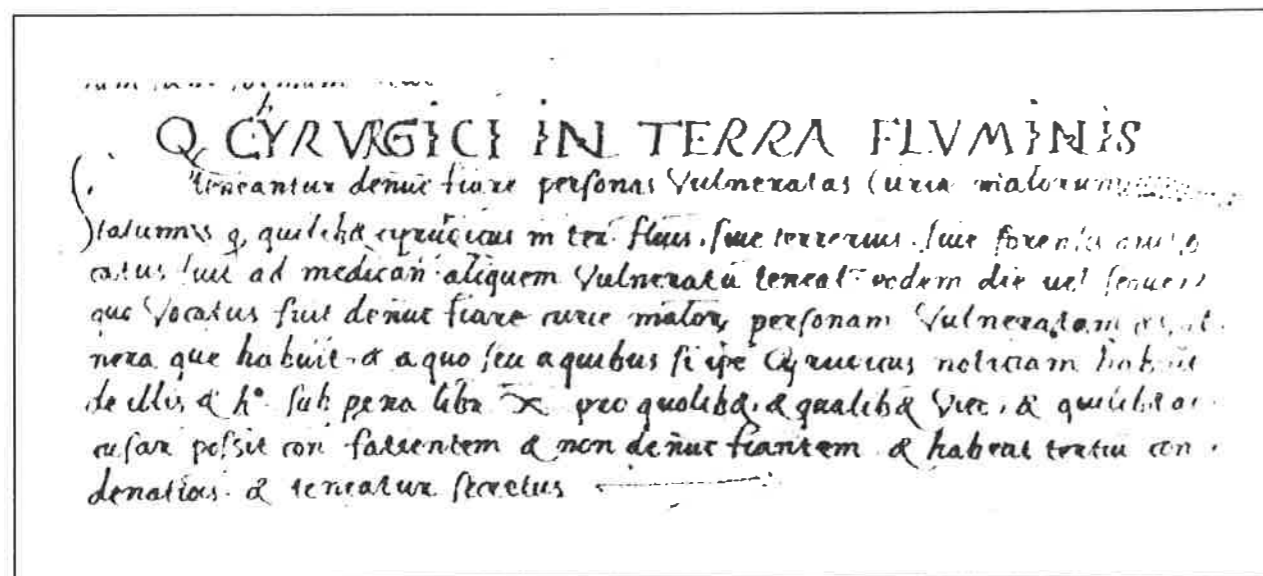 Q CHYRURGICI IN TERRA FLUMINIS
teneantur denũctiare personas Vulneratas Curie malorum
statuimus q, quilibꝫ cyrugicus in ter. flũis. siue terrerius. siue forensis
catus fuit ad medican̄ aliquem Vulneratũ teneat̃ eodem die uel
quo Vocatus fuit denũctiare curie malor, personam Vulneratam
nera que habuit. & a quo seu a quibus si ip̃e Cyrugicus noticiam habuit
de illis & hº. sub pena libr̃ X pro qualibꝫ. & qualibꝫ Vice. &
cusare possit con facientem & non denũctiantem & habeat tertiũ con
denatiõis. & teneatur secretus